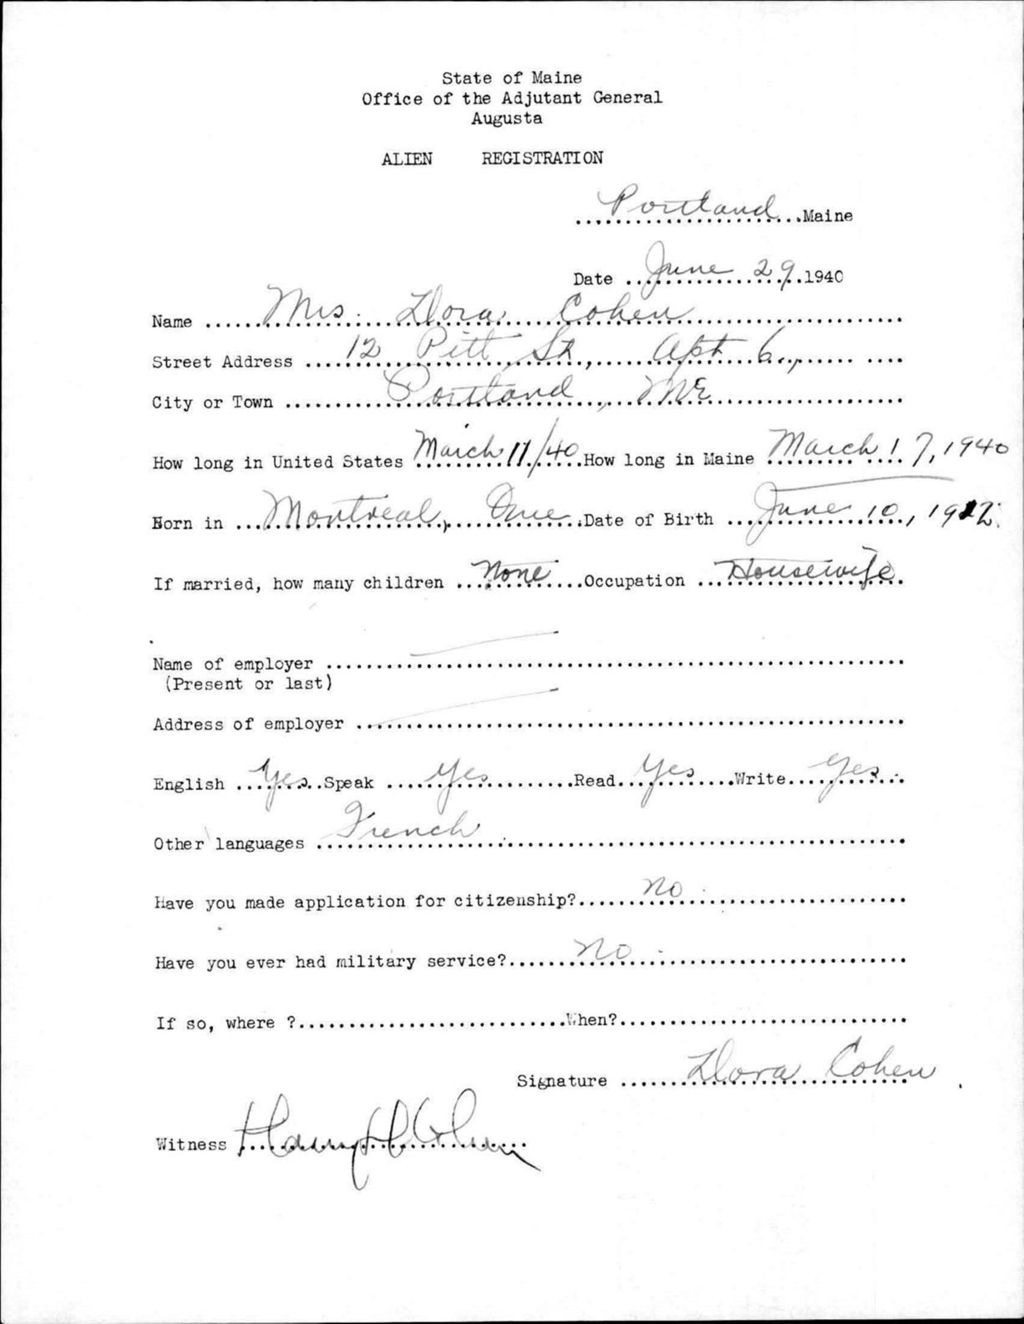 State of Maine
Office of the Adjutant General
Augusta
ALIEN REGISTRATION
Portland Maine
Date June 29 1940
Name Mrs. Dora Cohen
Street Address 12 Pitt St, Apt 6.,
City or Town Portland, ME
How long in United States March 11/40 How long in Maine March 17, 1940
Born in Montreal, Que Date of Birth June 10, 1912
If married, how many children None Occupation Housewife
Name of employer
(Present or last)
Address of employer
English Yes Speak Yes Read Yes Write Yes
Other languages French
Have you made application for citizenship? No
Have you ever had military service? No
If so, where ? When?
Signature Dora Cohen
Witness Harry Cohen